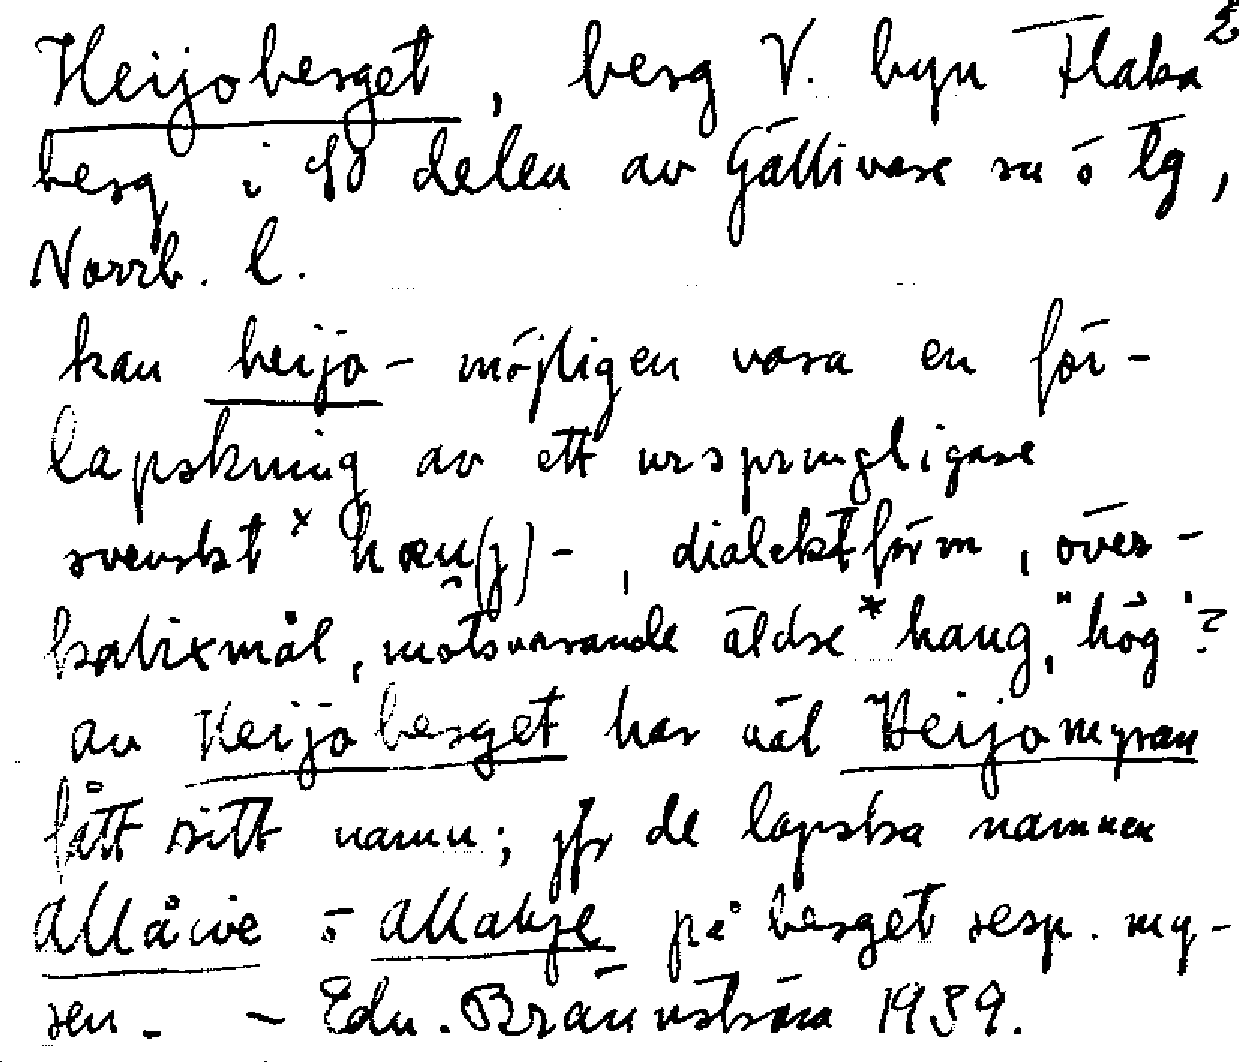 Heijoberget, berg V. byn Flaka=
berg i SO delen av Gällivare sn ö lg,
Norrb. l.
kan heijo- möjligen vara en för-
lapskning av ett ursprungligare
svenskt * hæu(j)-, dialektform, över-
kalixmål, motsvarande äldre * haug, "hög"?
av Heijoberget har väl Heijomyran
fått sitt namn; jfr de lapska namnen
Allåive ö Allakje på berget resp. my-
ren. - Edv. Brännström 1939.